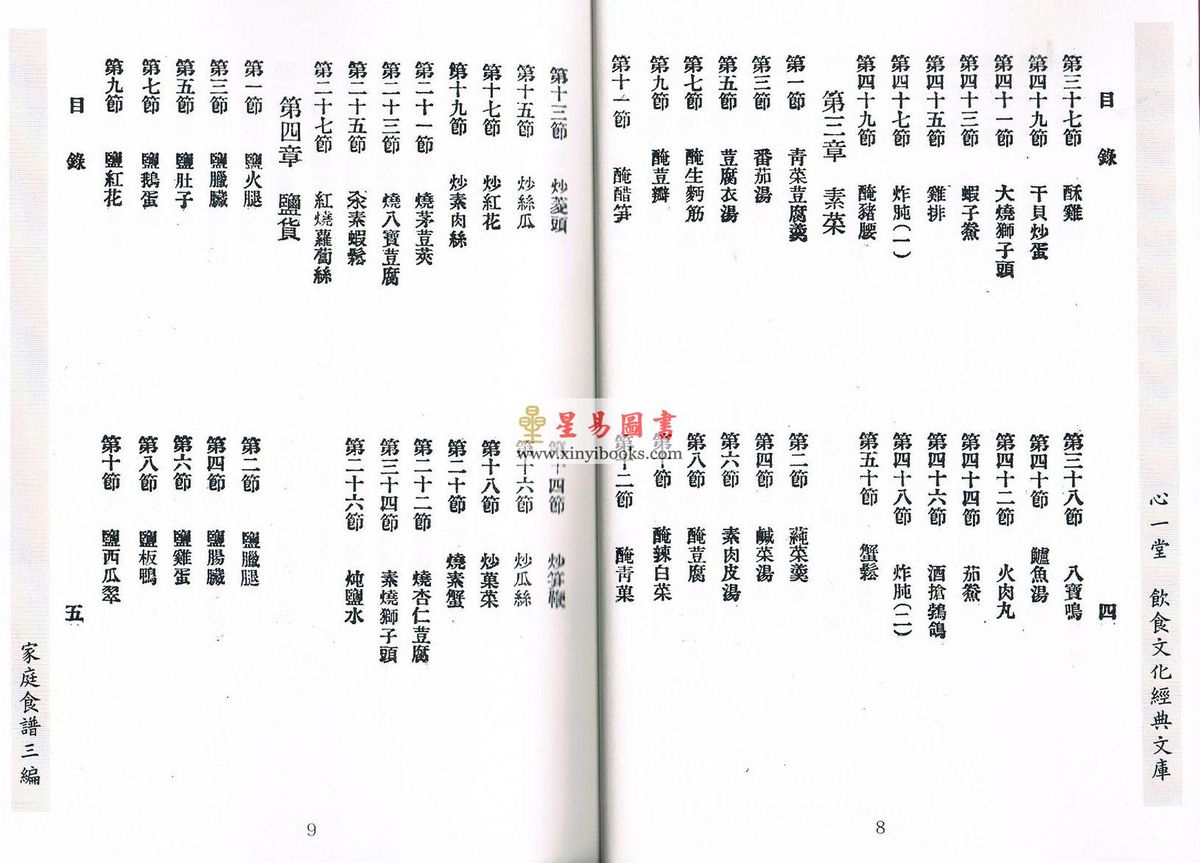 心一堂 飲食文化經典文庫
目錄
四
第三十七節 酥雞
第三十八節 八寶鳴
第四十九節 干貝炒蛋
第四十節 鱸魚湯
第四十一節 大燒獅子頭
第四十二節 火肉丸
第四十三節 蝦子鮝
第四十四節 茄鮝
第四十五節 雞排
第四十六節 酒搶鵓鴿
第四十七節 炸肫(一)
第四十八節 炸肫(二)
第四十九節 醃豬腰
第五十節 蟹鬆
第三章 素菜
第一節 靑菜荳腐羹
第二節 蒓菜羹
第三節 番茄湯
第四節 鹹菜湯
第五節 荳腐衣湯
第六節 素肉皮湯
第七節 醃生麪筋
第八節 醃荳腐
第九節 醃荳瓣
第十節 醃辣白菜
第十一節 醃醋笋
第十二節 醃靑菓
8
第十三節 炒菱頭
第十四節 炒笋鞭
第十五節 炒絲瓜
第十六節 炒瓜絲
第十七節 炒紅花
第十八節 炒菓菜
第十九節 炒素肉絲
第二十節 燒素蟹
第二十一節 燒茅荳莢
第二十二節 燒杏仁荳腐
第二十三節 燒八寶荳腐
第三十四節 素燒獅子頭
第二十五節 汆素蝦鬆
第二十六節 炖鹽水
第二十七節 紅燒蘿蔔絲
第四章 鹽貨
第一節 鹽火腿
第二節 鹽臘腿
第三節 鹽臘臟
第四節 鹽腸臟
第五節 鹽肚子
第六節 鹽雞蛋
第七節 鹽鵝蛋
第八節 鹽板鴨
第九節 鹽紅花
第十節 鹽西瓜翠
目錄
五
家庭食譜三編
9
星易圖書
www.xinyibooks.com